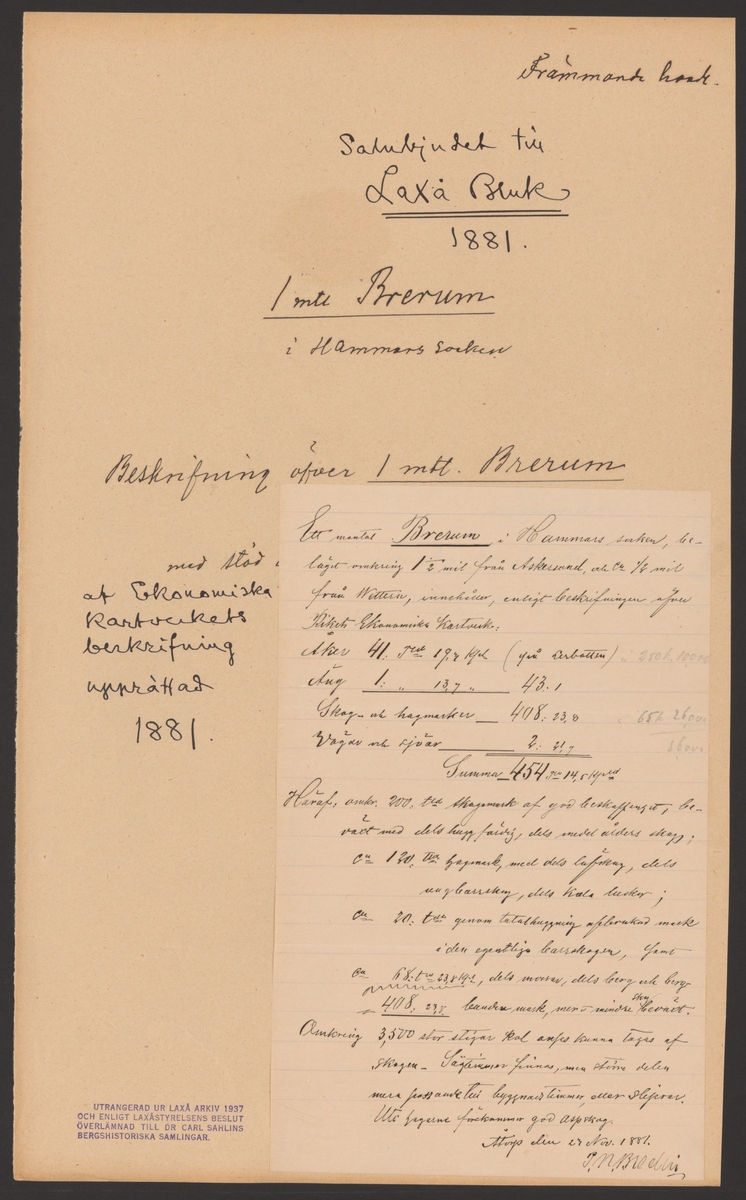 Främmande hand.
Salubjudet till
Laxå Bruk
1881.
1 mtl Brerum
i Hammars socken
Beskrifning öfver 1 mtl. Brerum
med stöd
af Ekonomiska
Kartverkets
beskrifning
upprättad
1881.
Ett mantal Brerum i Hammars socken, be-
läget omkring 1 1/2 mil från Askersund, och ca 1/8 mil
från Wettern, innehåller, enligt beskrifningen öfver
Rikets Ekonomiska Kartverk:
Åker 41: 19,7 (på lerbotten)
Äng 1: „ 13,7 „ 43. 1
Skog- och hagmarker 408: 23,8
Vägar och sjöar 2: 21,7
Summa 454 14,5
Häraf, omkr. 200. skogsmark af god beskaffenhet, be-
växt med dels huggfärdig, dels medelålders skog;
ca 120. hagmark, med dels löfskog, dels
ung barrskog, dels kala backar;
ca 20: genom totalhuggning afverkad mark
i den egentliga barrskogen, samt
ca 68: 23,8, dels mossar, dels berg och berg-
408: 23,8 bunden mark, mer o mindre skog beväxt.
Omkring 3,500 stor stigar kol anses kunna tagas af
skogen. Sågtimmer finnes, men större delen
mera passande till byggnadstimmer, eller slipers.
Uti hagarne förekommer god aspskog.
Åtorp den 24 Nov. 1881.
UTRANGERAD UR LAXÅ ARKIV 1937
OCH ENLIGT LAXÅSTYRELSENS BESLUT
ÖVERLÄMNAD TILL DR CARL SAHLINS
BERGSHISTORISKA SAMLINGAR.